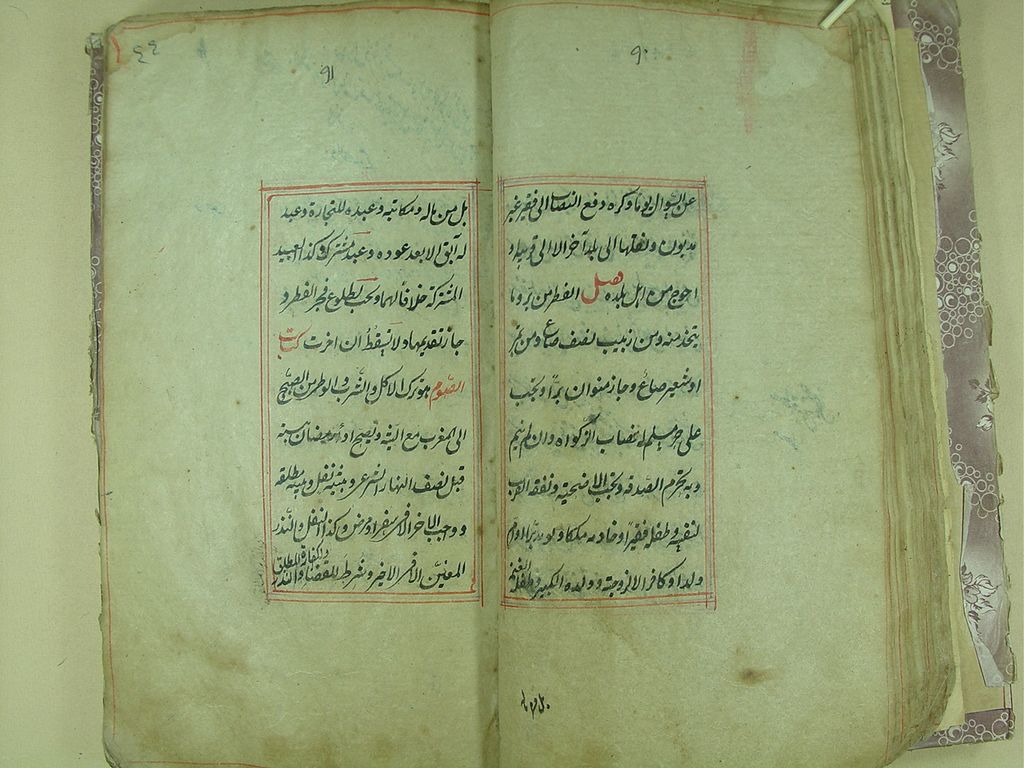 ۹۰
عن السؤال يوما وكره دفع النصاب الى فقير غير
مديون ونقلها الى بلد آخر الا الى قريبه او
احوج من اهل بلده فصل الفطر من بر وما
يتخذ منه ومن زبيب نصف صاع ومن تمر
او شعير صاع وجاز منوان برا ويجب
على حر مسلم له نصاب الزكوة وان لم ينم
وبه تحرم الصدقة ويجب الاضحية ونفقة القريب
لنفسه وطفله فقيرا وخادمه ملكا ولو مدبرا او ام
ولد او كافر الا لزوجته وولده الكبير وطفله الغنى
بل من ما له
۹۱
۴۶
بل من ماله ومكاتبه وعبده للتجارة وعبد
له آبق الا بعد عوده وعبد مشترك وكذا العبيد
المشتركة خلافا لهما ويجب لطلوع فجر الفطر و
جاز تقديمها ولا تسقط ان اخرت كتاب
الصوم هو ترك الاكل والشرب والوطى من الصبح
الى المغرب مع النية ويصح اداء رمضان بنية
قبل نصف النهار الشرعى وبنية نفل وبنية مطلقة
وواجب الاخر الا فى سفر او مرض وكذا النفل والنذر
المعين الا فى الاخير وشرط للقضاء والنذر
والكفارة المطلق